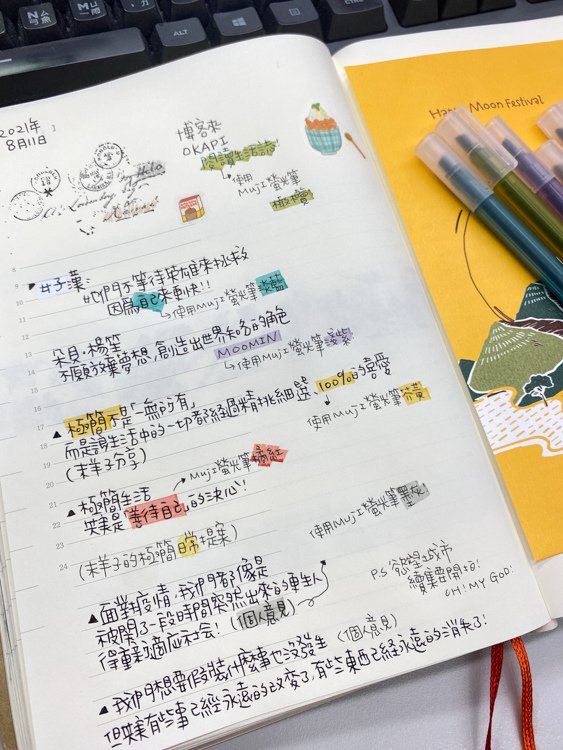 2021年
8月11日
博客來
OKAPI
閱讀生活誌
使用
MUJI 螢光筆
橄欖
Hello
8
9
#女子漢
她們不等待英雄來拯救
因為自己來更快!!
使用MUJI螢光筆藍
13
朵貝·楊笙
14
不願放棄夢想,創造出世界知名的角色
MOOMIN
使用MUJI螢光筆淺紫
16
▲極簡不是「一無所有」
17
而是讓生活中的一切都經過精挑細選、100%的喜愛
18
使用MUJI螢光筆芥黃
19
MUJI螢光筆橘紅
21
▲極簡生活
22
其實是「善待自己」的決心!
23
使用MUJI螢光筆墨灰
24
(末羊子的極簡日常提案)
▲面對疫情,我們都像是
被關了一段時間突然出來的更生人
得重新適應社會!(個人意見)
P.S 慾望城市
續集要開拍!
OH! MY GOD!
▲我們想要假裝什麼事也沒發生 (個人意見)
但其實有些事已經永遠的改變了,有些東西已經永遠的消失了!
Moon Festival
ALT
CTRL